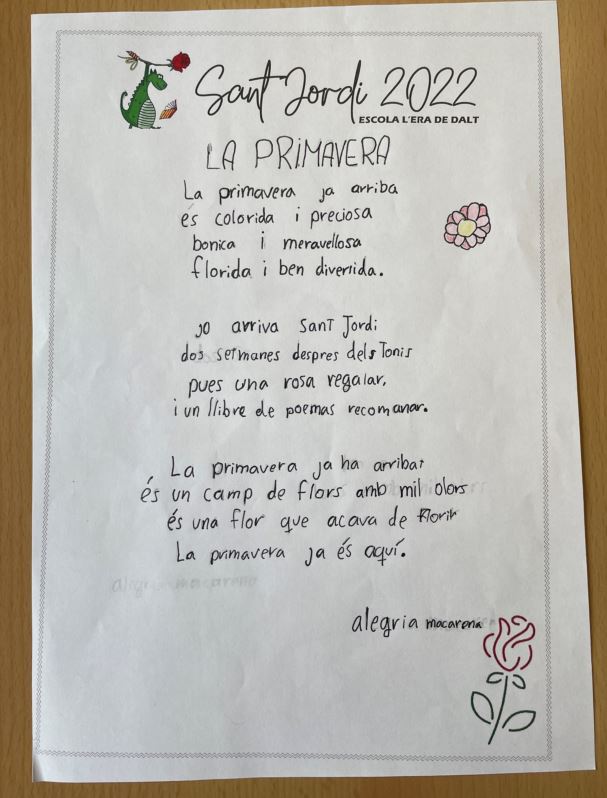 Sant Jordi 2022
ESCOLA L'ERA DE DALT
LA PRIMAVERA
La primavera ja arriba
és colorida i preciosa
bonica i meravellosa
florida i ben divertida.
ja arriva Sant Jordi
dos setmanes despres dels Tonis
pues una rosa regalar,
i un llibre de poemas recomanar.
La primavera ja ha arribat
és un camp de flors amb mil olors
és una flor que acava de florir
La primavera ja és aquí.
alegria macarena